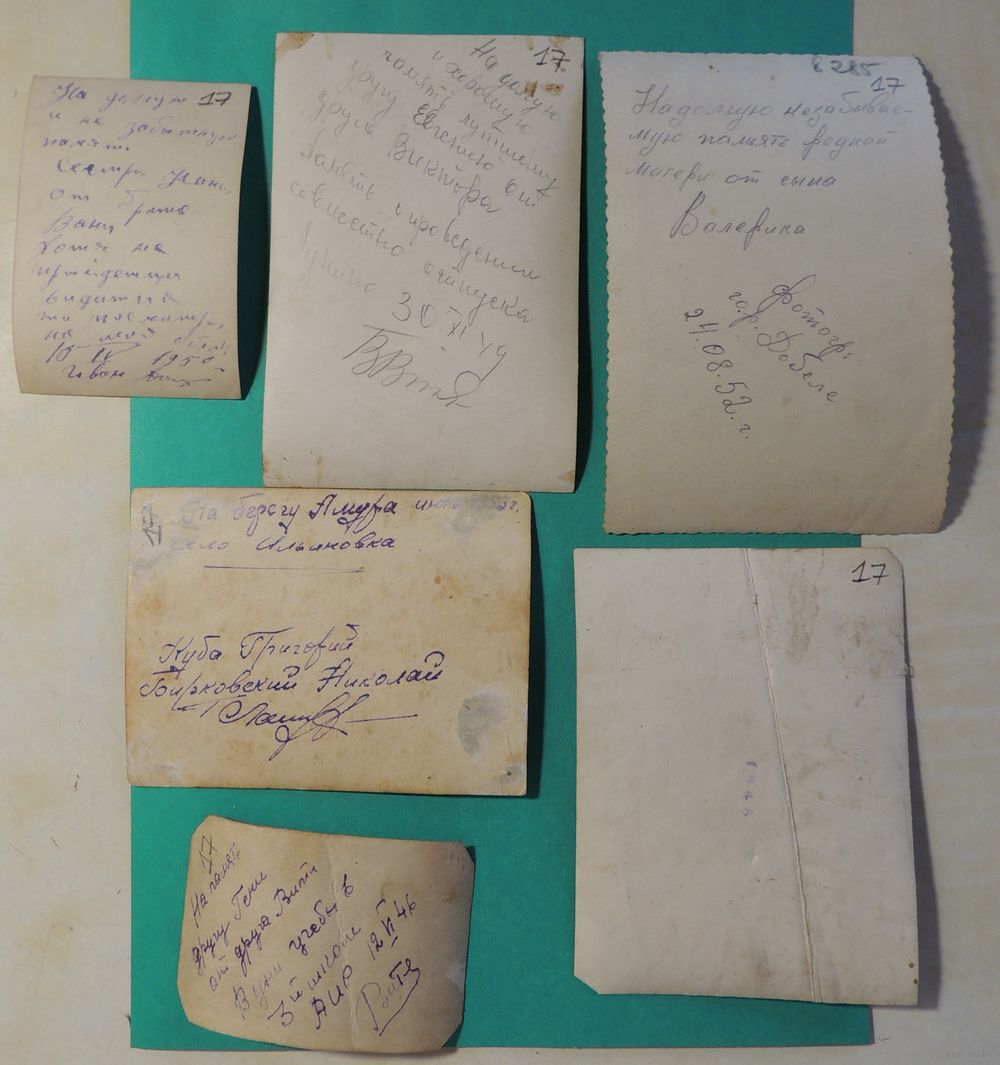 17
На долгую
и не забытную
память
Сестре
от брата
Вани
Хотя не
придетца
видитца
10 IV 1950
Иван
17
На долгую
и хорошую
память лутшему
другу Евгению от
друга Виктора
Память о проведении
совместно отпуска
30 XI 49
6285
17
На долгую незабывае-
мую память родной
матери от сына
Валерика
Фотогр.
гор. Добеле
24.08.52. г.
17
На берегу Амура
село Ильиновка
Куба Григорий
Бирковский Николай
17
1948
17
На память
другу Гени
от друга Вити
В дни учебы в
3й школе
АИР 12 VI 46